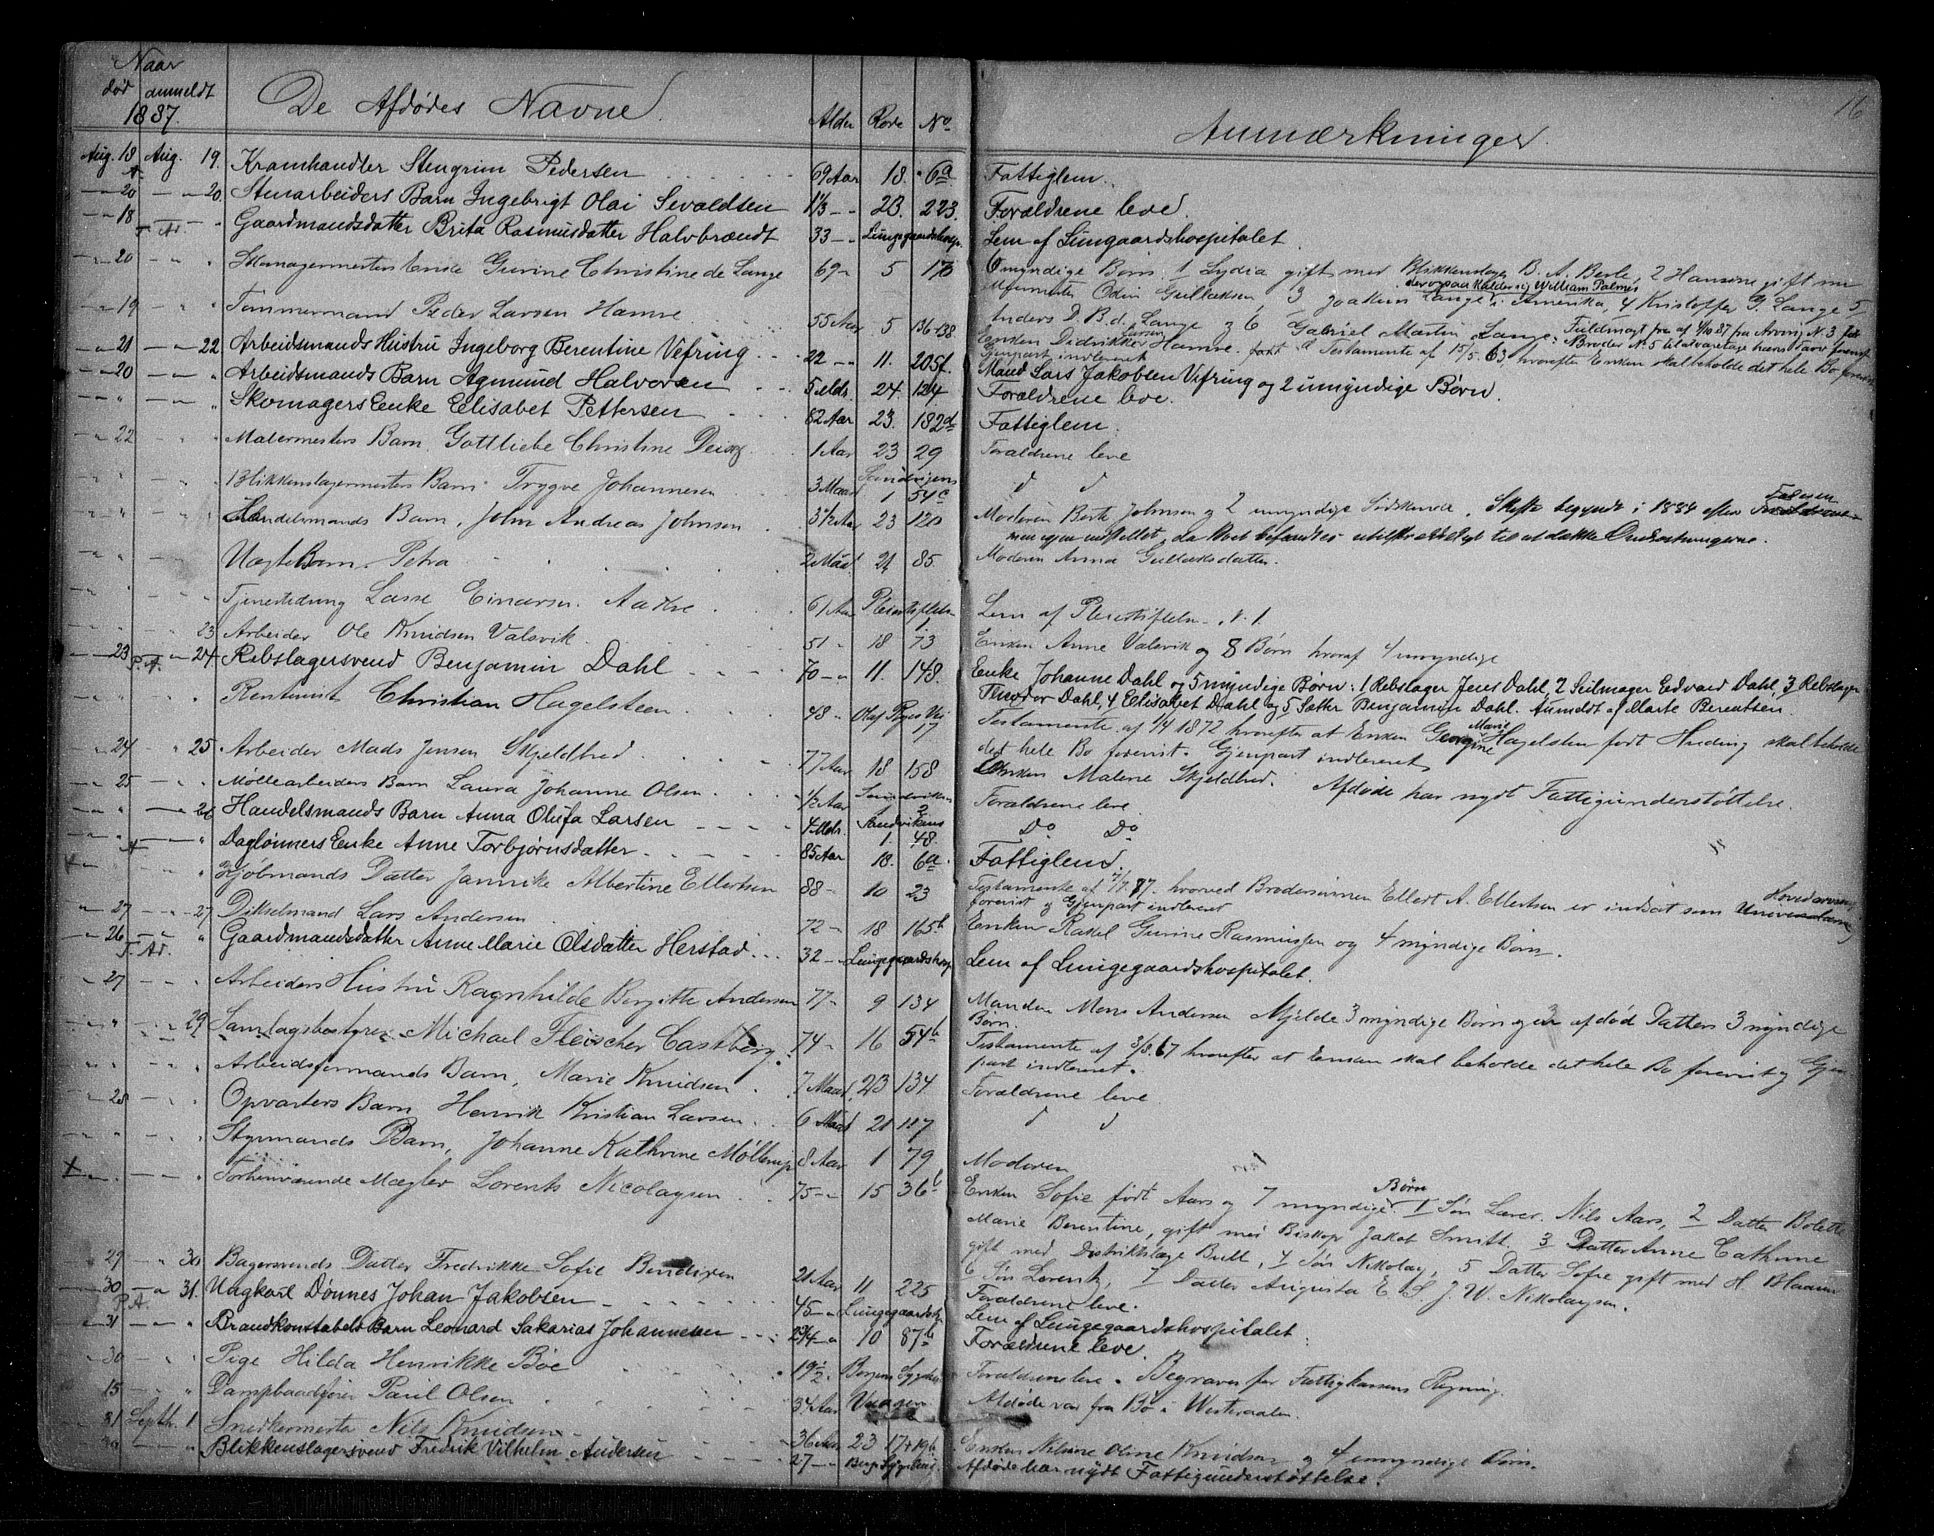 16
Naar
død anmeldt
1887.
De Afdødes Navne.
Alder Rode No
Anmærkninger.
Aug. 18 Aug. 19. Kramhandler Stengrim Pedersen 69 Aar 18. 6a Fattiglem.
20 20. Stenarbeiders Barn Ingebrigt Olai Sevaldsen 1 1/3 23. 223. Forældrene leve.
18 Gaardmandsdatter Brita Rasmusdatter Halvbrændt 33 Lungegaardshosp. Lem af Lungaardshospitalet.
20 Enke Gurine Christine de Lange 69 5 Umyndige Børn: 1 Lydia gift med Blikkenslager B. A. Berle, 2 Hansine gift m
derogsaa kalder sig William Palmes
Odin Gullaksen, 3 Joakim Lange i Amerika, 4 Kristoffer G. Lange 5
19 Tømmermand Peder Larsen Hamre 55 Aar 5 136-138
Anders D. B. d. Lange og 6 Gabriel Martin Lange. Fuldmagt fra
Enken Didrikke Hamre født Testamente af 15/5 63, hvorefter Enken skal beholde det hele Bo
Gjenpart indleveret
21 22. Arbeidsmands Hustru Ingeborg Berentine Vefring 22 11. 205f. Mand Lars Jakobsen Vefring og 2 umyndige Børn.
20 Arbeidsmands Barn Agmund Halvorsen 5 Mdr. 24. 124. Forældrene leve.
Skomagers Enke Elisabet Pettersen 82 Aar 23. 182d Fattiglem.
22 Malermesters Barn Gottliebe Christine 1 Aar 23 29 Forældrene leve
Blikkenslagermesters Barn Trygve Johannesen 3 Maan Sandvigens 1 54c d d
Handelsmands Barn, John Andreas Johnsen 3 1/2 Aar 23 120 Moderen Berte Johnsen og 2 umyndige Sødskende. Skifte begyndt i 1884 efter Faderen
men igjen indstillet, da Boet befandtes utilstrækkeligt til at dække Omkostningerne.
Uægte Barn Petra 2 Maan 21 85. Moderen Anna Gullaksdatter.
Tjenestedreng Lasse Einarsen Aadne 61 Aar Pleiestiftelsen 1 Lem af Pleiestiftelsen N. 1.
23 Arbeider Ole Knudsen Valsvik 51 18 73 Enken Anne Valsvik og 8 Børn hvoraf 4 umyndige
23 P.A. 24 Rebslagersvend Benjamin Dahl 70 11. 148. Enke Johanne Dahl og 5 myndige Børn: 1 Rebslager Jens Dahl, 2 Seilmager Edvard Dahl, 3 Rebslager
Theodor Dahl, 4 Elisabet Dahl og 5 Datter Benjamine Dahl. Anmeldt af Marte Berentsen.
Rentenist Christian Hagelsteen 48 Olaf Ryes Vei 17 Testamente af 1/4 1872 hvorefter at Enken Georgine Marie Hagelsten født Huding skal beholde
det hele Bo forenist. Gjenpart indleveret
24 25 Arbeider Mads Jensen Skjeldbred 77 Aar 18 158 Enken Malene Skjeldbred. Afdøde har nydt Fattigunderstøttelse.
25 Møllearbeiders Barn Laura Johanne Olsen 1/2 Aar Sandviken 2 Forældrene leve
26 Handelsmands Barn Anna Olufa Larsen 4 Mdr. Sandvikens 1. 48. Do Do
Daglønners Enke Anne Torbjørnsdatter 85 Aar 18. 6a. Fattiglem.
Kjøbmands Datter Jannike Albertine Ellertsen 88 10 23 Testamente af 7/7 87. hvorved Brodersønnen Ellert A. Ellertsen er indsat som Hovedarving
forenist og Gjenpart indleveret
27 27 Dikselmand Lars Andersen 72 18 165b Enken Rakel Gurine Rasmussen og 4 myndige Børn.
26 Gaardmandsdatter Anne Marie Olsdatter Herstad 32 Lungegaardshosp Lem af Lungegaardshospitalet.
27 Arbeiders Hustru Ragnhilde Birgitte Andersen 77 9 134 Manden Mons Andersen Mjelde 3 myndige Børn og en afdød Datters 3 myndige
Børn.
29 Samlagsbestyrer Michael Fleischer Castberg 74 16 54b Testamente af 3/8 67 hvorefter at Enken skal beholde det hele Bo forenist og Gjen
part indleveret.
Arbeidsformands Barn, Marie Knudsen 7 Maan 23 134 Forældrene leve
28 Opvarters Barn Henrik Kristian Larsen 6 Maan 21 117 d d
Styrmands Barn, Johanne Kathrine Møllerup 8 Aar 1 79 Moderen
Forhenværende Mægler Lorents Nicolaysen 75 15 36b Enken Sofie født Aars og 7 myndige Børn 1 Søn Lærer Nils Aars, 2 Datter Bolette
Marie Berentine, gift med Biskop Jakob Smitt, 3 Datter Anne Cathrine
gift med Distriktslæge Bull, 4 Søn Nikolay, 5 Datter Sofie gift med H. Blaauw
6 Søn Lorentz, 7 Datter Augusta E. S. J. W. Nikolaysen.
29 30 Bagersvends Datter Fredrikke Sofie Bendixen 21 Aar 11 225 Forældrene leve.
30 P.A. 31. Ungkarl Dønnes Johan Jakobsen 45 Lungegaardsh. Lem af Lungegaardshospitalet.
31 Brandkonstabels Barn Leonard Sakarias Johannesen 2 3/4 10 87b Forældrene leve.
30 Pige Hilda Henrikke Bøe 19 1/2 Bergens Sygehus Forældrene leve. Begraves for Fattigkassens Regning.
15 Dampbaadfører Paul Olsen 34 Aar Vaagen Afdøde var fra Bø i Westeraalen.
31 Septbr. 1 Snedkermester Nils Knudsen 36 Aar 23 17+19b Enken Nilsine Oline Knudsen og 4 umyndige Børn.
Blikkenslagersvend Fredrik Vilhelm Andersen 27 Afdøde har nydt Fattigunderstøttelse.